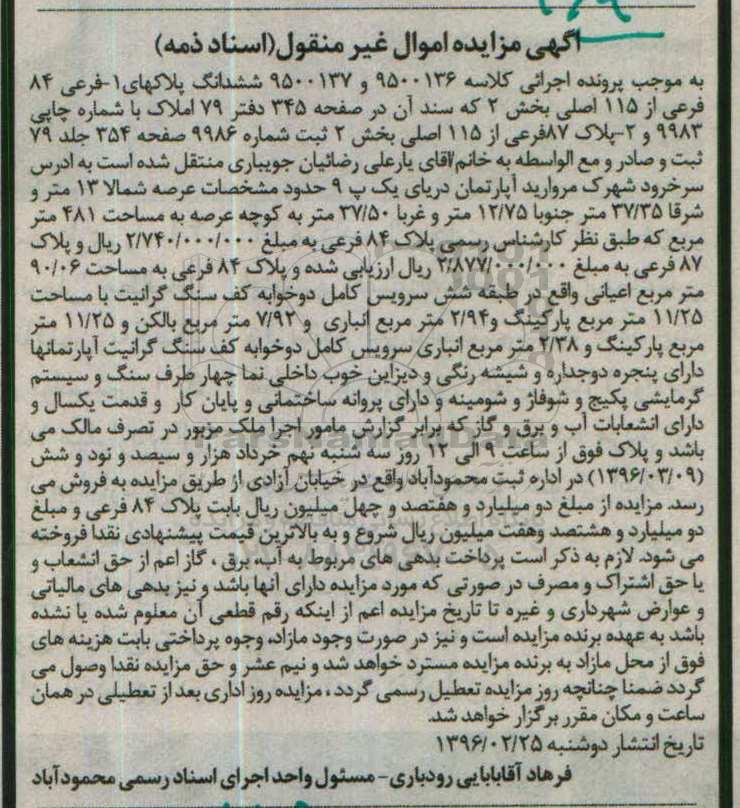 آگهی مزایده اموال غیر منقول(اسناد ذمه)
به موجب پرونده اجرائی کلاسه ۹۵۰۰۱۳۶ و ۹۵۰۰۱۳۷ ششدانگ پلاکهای۱-فرعی ۸۴
فرعی از ۱۱۵ اصلی بخش ۲ که سند آن در صفحه ۳۴۵ دفتر ۷۹ املاک با شماره چاپی
۹۹۸۳ و ۲-پلاک ۸۷فرعی از ۱۱۵ اصلی بخش ۲ ثبت شماره ۹۹۸۶ صفحه ۳۵۴ جلد ۷۹
ثبت و صادر و مع الواسطه به خانم/آقای یارعلی رضائیان جویباری منتقل شده است به ادرس
سرخرود شهرک مروارید آپارتمان دریای یک پ ۹ حدود مشخصات عرصه شمالا ۱۳ متر و
شرقا ۳۷/۳۵ متر جنوبا ۱۲/۷۵ متر و غربا ۳۷/۵۰ متر به کوچه عرصه به مساحت ۴۸۱ متر
مربع که طبق نظر کارشناس رسمی پلاک ۸۴ فرعی به مبلغ ۲/۷۴۰/۰۰۰/۰۰۰ ریال و پلاک
۸۷ فرعی به مبلغ ۲/۸۷۷/۰۰۰/۰۰۰ ریال ارزیابی شده و پلاک ۸۴ فرعی به مساحت ۹۰/۰۶
متر مربع اعیانی واقع در طبقه شش سرویس کامل دوخوابه کف سنگ گرانیت با مساحت
۱۱/۲۵ متر مربع پارکینگ و۲/۹۴ متر مربع انباری و ۷/۹۲ متر مربع بالکن و ۱۱/۲۵ متر
مربع پارکینگ و ۲/۳۸ متر مربع انباری سرویس کامل دوخوابه کف سنگ گرانیت آپارتمانها
دارای پنجره دوجداره و شیشه رنگی و دیزاین خوب داخلی نما چهار طرف سنگ و سیستم
گرمایشی پکیج و شوفاژ و شومینه و دارای پروانه ساختمانی و پایان کار و قدمت یکسال و
دارای انشعابات آب و برق و گاز که برابر گزارش مامور اجرا ملک مزبور در تصرف مالک می
باشد و پلاک فوق از ساعت ۹ الی ۱۲ روز سه شنبه نهم خرداد هزار و سیصد و نود و شش
(۱۳۹۶/۰۳/۰۹) در اداره ثبت محمودآباد واقع در خیابان آزادی از طریق مزایده به فروش می
رسد. مزایده از مبلغ دو میلیارد و هفتصد و چهل میلیون ریال بابت پلاک ۸۴ فرعی و مبلغ
دو میلیارد و هشتصد وهفت میلیون ریال شروع و به بالاترین قیمت پیشنهادی نقدا فروخته
می شود. لازم به ذکر است پرداخت بدهی های مربوط به آب، برق ، گاز اعم از حق انشعاب و
یا حق اشتراک و مصرف در صورتی که مورد مزایده دارای آنها باشد و نیز بدهی های مالیاتی
و عوارض شهرداری و غیره تا تاریخ مزایده اعم از اینکه رقم قطعی آن معلوم شده یا نشده
باشد به عهده برنده مزایده است و نیز در صورت وجود مازاد، وجوه پرداختی بابت هزینه های
فوق از محل مازاد به برنده مزایده مسترد خواهد شد و نیم عشر و حق مزایده نقدا وصول می
گردد ضمنا چنانچه روز مزایده تعطیل رسمی گردد ، مزایده روز اداری بعد از تعطیلی در همان
ساعت و مکان مقرر برگزار خواهد شد.
تاریخ انتشار دوشنبه ۱۳۹۶/۰۲/۲۵
فرهاد آقابابایی رودباری- مسئول واحد اجرای اسناد رسمی محمودآباد